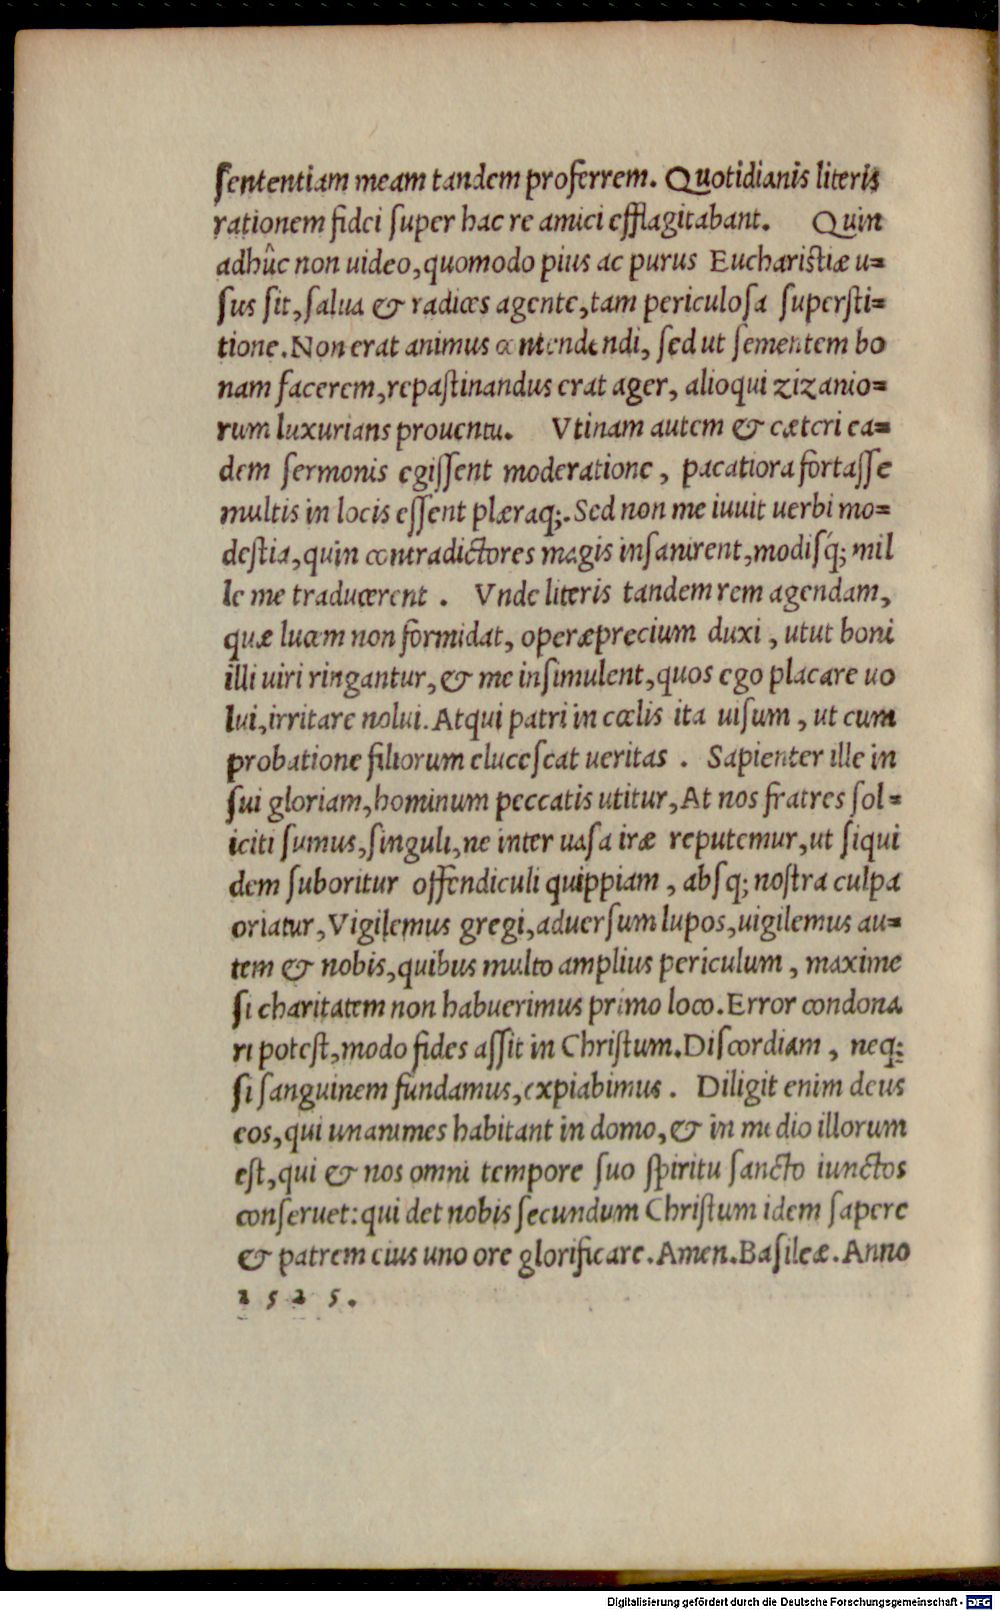 sententiam meam tandem proferrem. Quotidianis literis
rationem fidei super hac re amici efflagitabant. Quin
adhûc non uideo,quomodo pius ac purus Eucharistiæ u=
sus sit,salua & radices agente,tam periculosa supersti=
tione.Non erat animus contendendi, sed ut sementem bo
nam facerem,repastinandus erat ager, alioqui zizanio=
rum luxurians prouentu. Vtinam autem & cæteri ea=
dem sermonis egissent moderatione, pacatiora fortasse
multis in locis essent plæraq;. Sed non me iuuit uerbi mo=
destia,quin contradictores magis insanirent,modisq́; mil
le me traducerent. Vnde literis tandem rem agendam,
quæ lucem non formidat, operæprecium duxi, utut boni
illi uiri ringantur, & me insimulent,quos ego placare uo
lui,irritare nolui. Atqui patri in cœlis ita uisum, ut cum
probatione filiorum elucescat ueritas. Sapienter ille in
sui gloriam,hominum peccatis utitur, At nos fratres sol=
iciti sumus,singuli,ne inter uasa iræ reputemur,ut siqui
dem suboritur offendiculi quippiam, absq; nostra culpa
oriatur, Vigilemus gregi,aduersum lupos,uigilemus au=
tem & nobis,quibus multo amplius periculum, maxime
si charitatem non habuerimus primo loco. Error condona
ri potest,modo fides assit in Christum. Discordiam, neq;
si sanguinem fundamus,expiabimus. Diligit enim deus
eos,qui unanimes habitant in domo, & in medio illorum
est,qui & nos omni tempore suo spiritu sancto iunctos
conseruet: qui det nobis secundum Christum idem sapere
& patrem eius uno ore glorificare. Amen. Basileæ. Anno
1525.
Digitalisierung gefördert durch die Deutsche Forschungsgemeinschaft - DFG